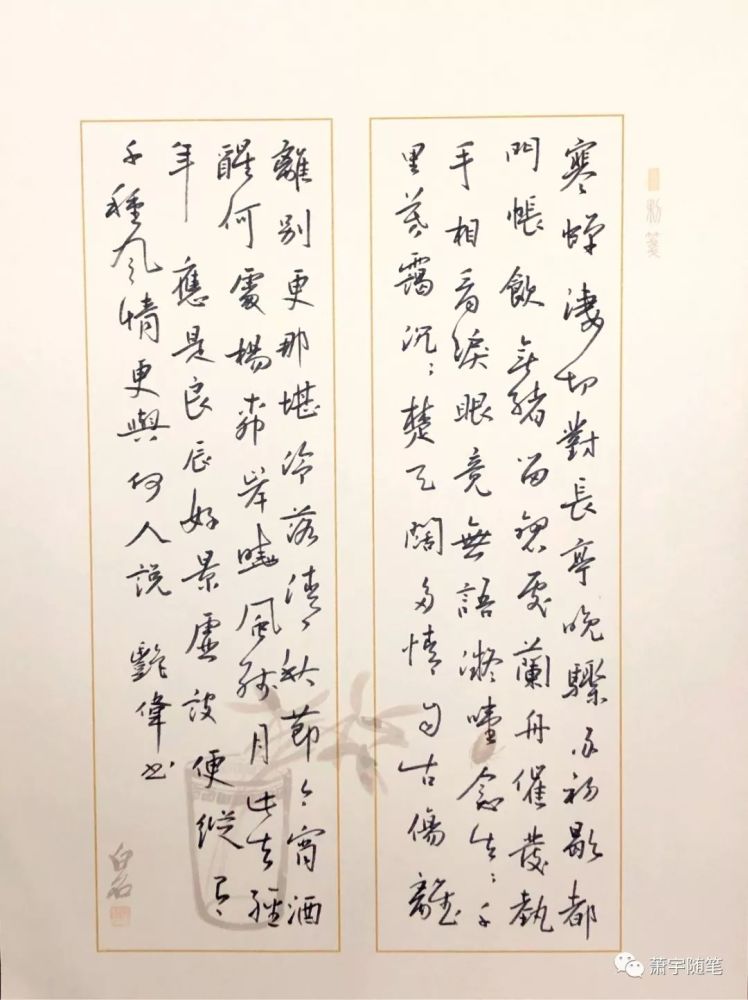 寒蟬淒切對長亭晚驟雨初歇都
門帳飲無緒留戀處蘭舟催發執
手相看淚眼竟無語凝噎念去:千
里暮靄沉:楚天闊多情自古傷離
離別更那堪冷落清秋節今宵酒
醒何處楊柳岸曉風殘月此去經
年應是良辰好景虛設便縱有
千種風情更與何人說 豔偉書
萧宇随笔